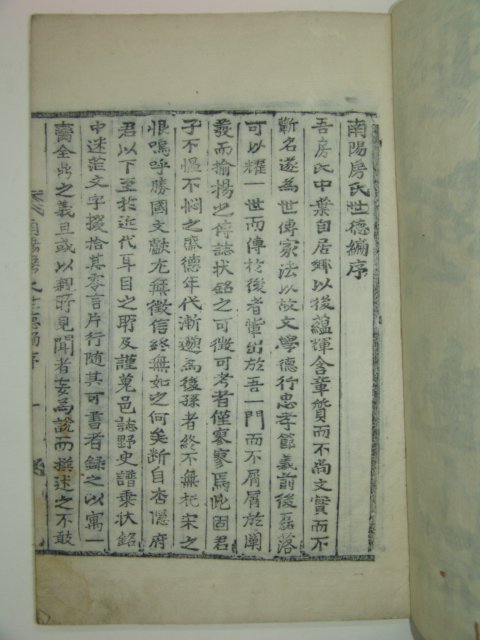 南陽房氏世德編序
吾房氏中葉自居鄕以後蘊渾含章質而不尚文實而不
衒名遂爲世傳家法以故文學德行忠孝節義前後磊落
可以耀一世而傳於後者輩出於吾一門而不屑屑於闡
發而揄揚也傳誌狀銘之可徵可考者僅寥寥焉此固君
子不慍不悶之盛德年代漸邈爲後孫者終不無杞宋之
恨嗚呼勝國文獻尤無徵信終無如之何矣斷自杏隱府
君以下至於近代耳目之所及謹蒐邑誌野史譜乘狀銘
中迷茫文字掇拾其零言片行隨其可書者錄之以寓一
臠全鼎之義且或以親所見聞者妄爲說而撰述之不敢
南陽房氏世德編序 一